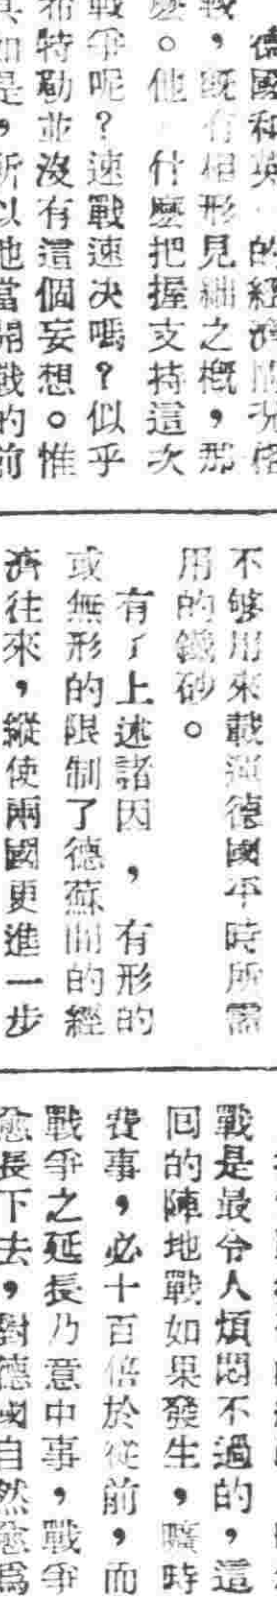 德國和英　的經濟情況　
戰，既有相形見絀之概，那
麼。他　什麼把握支持這次
戰爭呢？速戰速決嗎？似乎
希特勒並沒有這個妄想。惟
其如是，所以他當開戰的前
不够用來載運德國平時所需
用的鐵砂。
有了上述諸因，有形的
或無形的限制了德蘇間的經
濟往來，縱使兩國更進一步
戰是最令人煩悶不過的，這
回的陣地戰如果發生，曠時
費事，必十百倍於從前，而
戰爭之延長乃意中事，戰爭
愈長下去，對德國自然愈爲